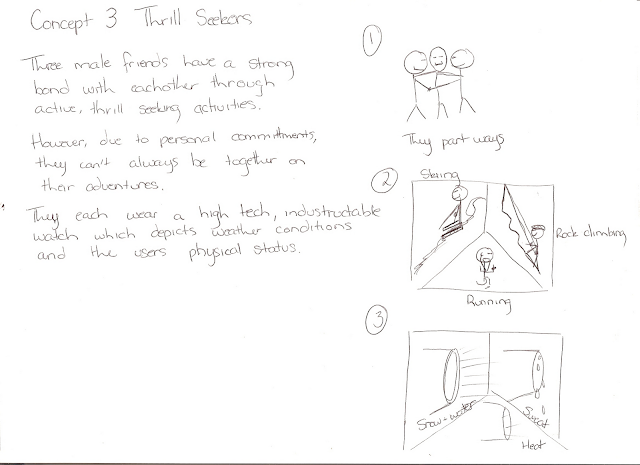 Concept 3 Thrill Seekers
Three male friends have a strong
bond with eachother through
active, thrill seeking activities.
However, due to personal committments,
they can't always be together on
their adventures.
They each wear a high tech, industructable
watch which depicts weather conditions
and the users physical status.
1
They part ways
2
Skiing
Rock climbing
Running
3
Snow-water
Sweat
Heat